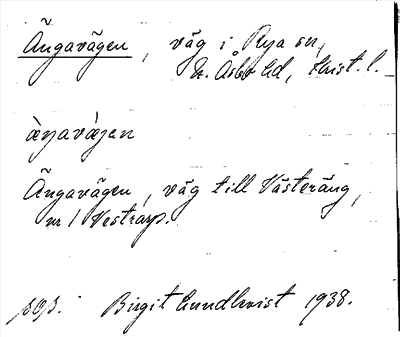 Ängavägen, väg i Rya sn,
N. Åsbo hd, Krist. l.
Ängavägen, väg till Västeräng,
nr 1 Vestrarp.
pop. Birgit Lundkvist 1938.